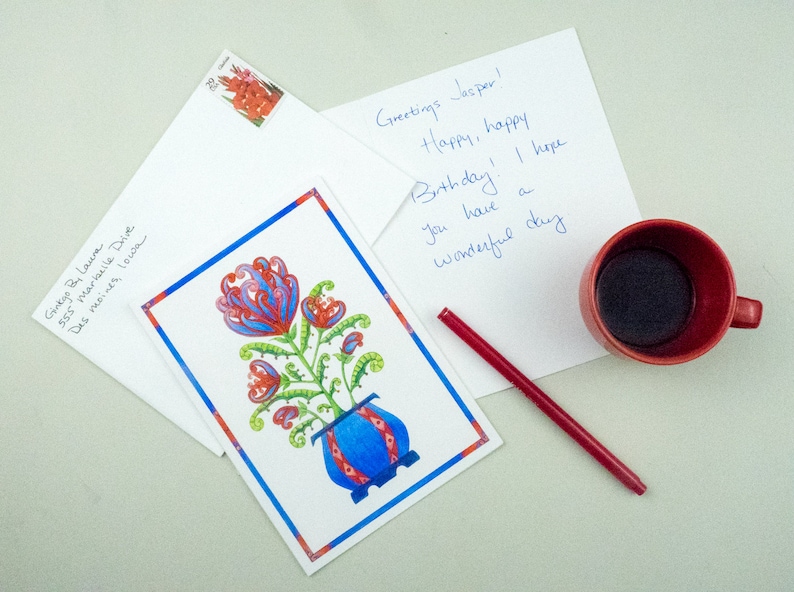 Greetings Jasper!
Happy, happy
Birthday! I hope
you have a
wonderful day
Ginkgo By Laura
555 Marbeile Drive
Des Moines, Iowa
29
USA